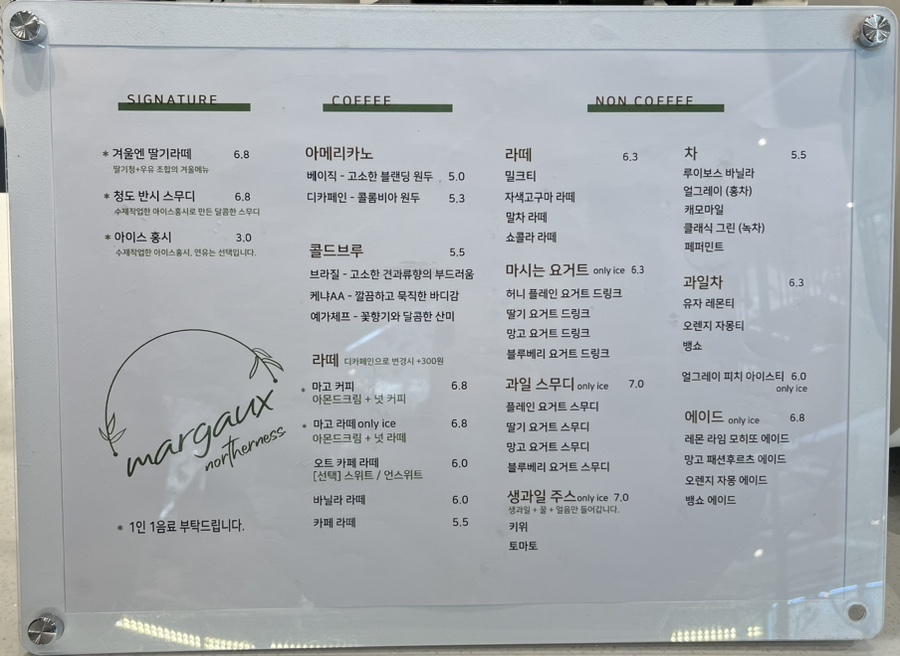 SIGNATURE
* 겨울엔 딸기라떼 6.8
딸기청+우유 조합의 겨울메뉴
* 청도 반시 스무디 6.8
수제작업한 아이스홍시로 만든 달콤한 스무디
* 아이스 홍시 3.0
수제작업한 아이스홍시, 연유는 선택입니다.
margaux
northerness
* 1인 1음료 부탁드립니다.
COFFEE
아메리카노
베이직 - 고소한 블랜딩 원두 5.0
디카페인 - 콜롬비아 원두 5.3
콜드브루 5.5
브라질 - 고소한 견과류향의 부드러움
케냐AA - 깔끔하고 묵직한 바디감
예가체프 - 꽃향기와 달콤한 산미
라떼 디카페인으로 변경시 +300원
* 마고 커피 6.8
아몬드크림 + 넛 커피
* 마고 라떼 only ice 6.8
아몬드크림 + 넛 라떼
오트 카페 라떼 6.0
[선택] 스위트 / 언스위트
바닐라 라떼 6.0
카페 라떼 5.5
NON COFFEE
라떼 6.3
밀크티
자색고구마 라떼
말차 라떼
쇼콜라 라떼
마시는 요거트 only ice 6.3
허니 플레인 요거트 드링크
딸기 요거트 드링크
망고 요거트 드링크
블루베리 요거트 드링크
과일 스무디 only ice 7.0
플레인 요거트 스무디
딸기 요거트 스무디
망고 요거트 스무디
블루베리 요거트 스무디
생과일 주스 only ice 7.0
생과일 + 꿀 + 얼음만 들어갑니다.
키위
토마토
차 5.5
루이보스 바닐라
얼그레이 (홍차)
캐모마일
클래식 그린 (녹차)
페퍼민트
과일차 6.3
유자 레몬티
오렌지 자몽티
뱅쇼
얼그레이 피치 아이스티 6.0
only ice
에이드 only ice 6.8
레몬 라임 모히또 에이드
망고 패션후르츠 에이드
오렌지 자몽 에이드
뱅쇼 에이드